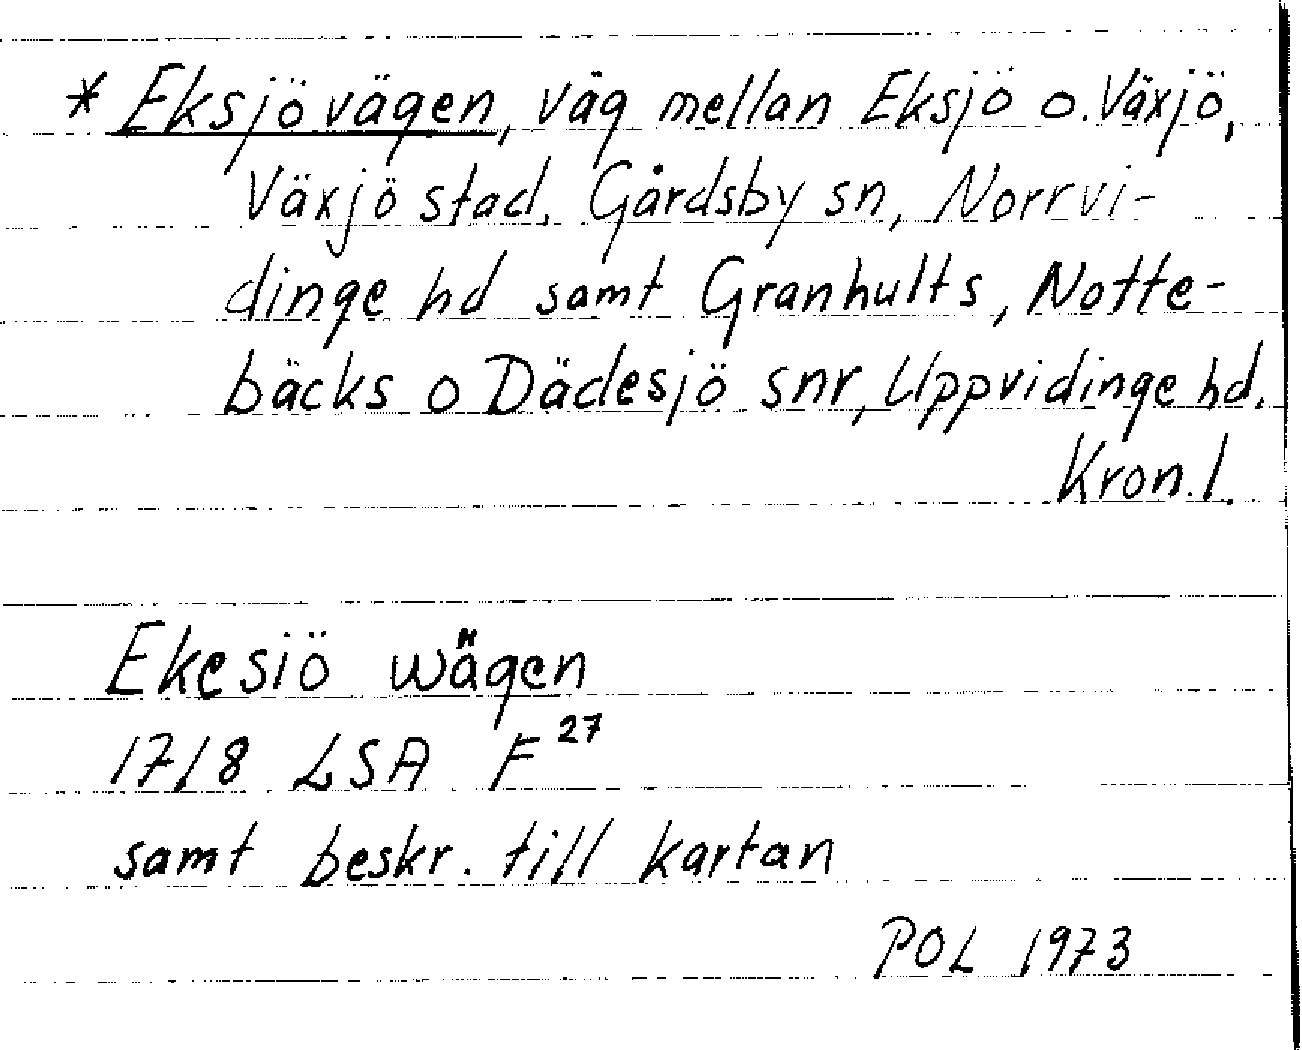 * Eksjövägen, väg mellan Eksjö o. Växjö,
Växjö stad, Gårdsby sn, Norrvi-
dinge hd samt Granhults, Notte-
bäcks o Dädesjö snr, Uppvidinge hd.
Kron. l.
Ekesiö wägen
1718 LSA F 27
samt beskr. till kartan
POL 1973